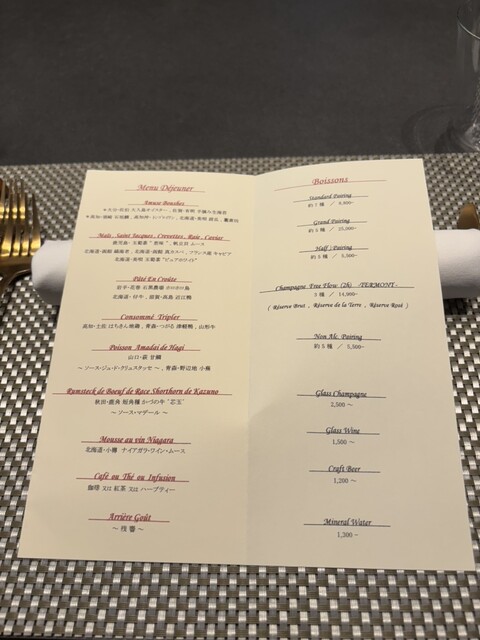 Menu Déjeuner
Amuse Bouches
Maïs, Saint Jacques, Crevettes, Raie, Caviar
Pâté En Croûte
Consommé Tripler
高知・土佐 はちきん地鶏 , 青森・つがる 津軽鴨 , 山形牛
Poisson Amadai de Hagi
山口・萩 甘鯛
Rumsteck de Boeuf de Race Shorthorn de Kazuno
秋田・鹿角 短角種 かづの牛 "芯玉"
～ ソース・マデール ～
Mousse au vin Niagara
北海道・小樽 ナイアガラ・ワイン・ムース
Café ou Thé ou Infusion
珈琲 又は 紅茶 又は ハーブティー
Arrière Goût
～ 残響 ～
Boissons
Standard Pairing
Grand Pairing
約 5 種 / 25,000~
Half : Pairing
約 3 種 / 5,500~
Champagne Free Flow (2h) -TERMONT-
3 種 / 14,000~
( Réserve Brut , Réserve de la Terre , Réserve Rosé )
Non Alc. Pairing
約 5 種 / 5,500~
Glass Champagne
2,500 ~
Glass Wine
1,500 ~
Craft Beer
1,200 ~
Mineral Water
1,300 ~